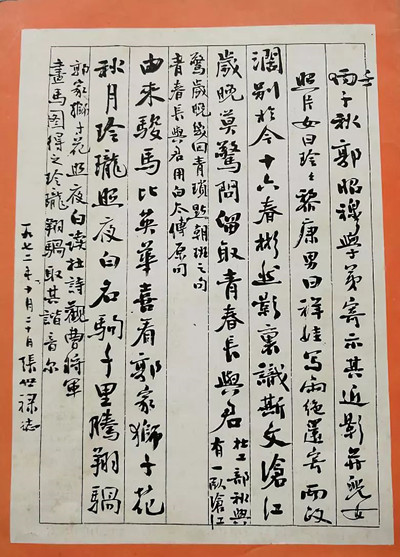 壬
丙子秋郭昭學弟寄示其近影并兒女
照片女曰玲々黎康男曰祥娃寫兩絕還寄而政
濶別於今十六春彬然影裏識斯文滄江
歲晚莫驚問留取青春長與君
杜工部秋興
有一臥滄江
驚歲晚幾回青瑣點朝班之句
青春長與君用白太傅原句
由來駿馬比英華喜看郭家獅子花
秋月玲瓏照夜白名駒千里騰翔騧
郭家獅子花照夜白讀杜詩觀曹將軍
畫馬圖得之玲瓏翔騧取其諧音尔
一九七二年十月二十日張世祿志